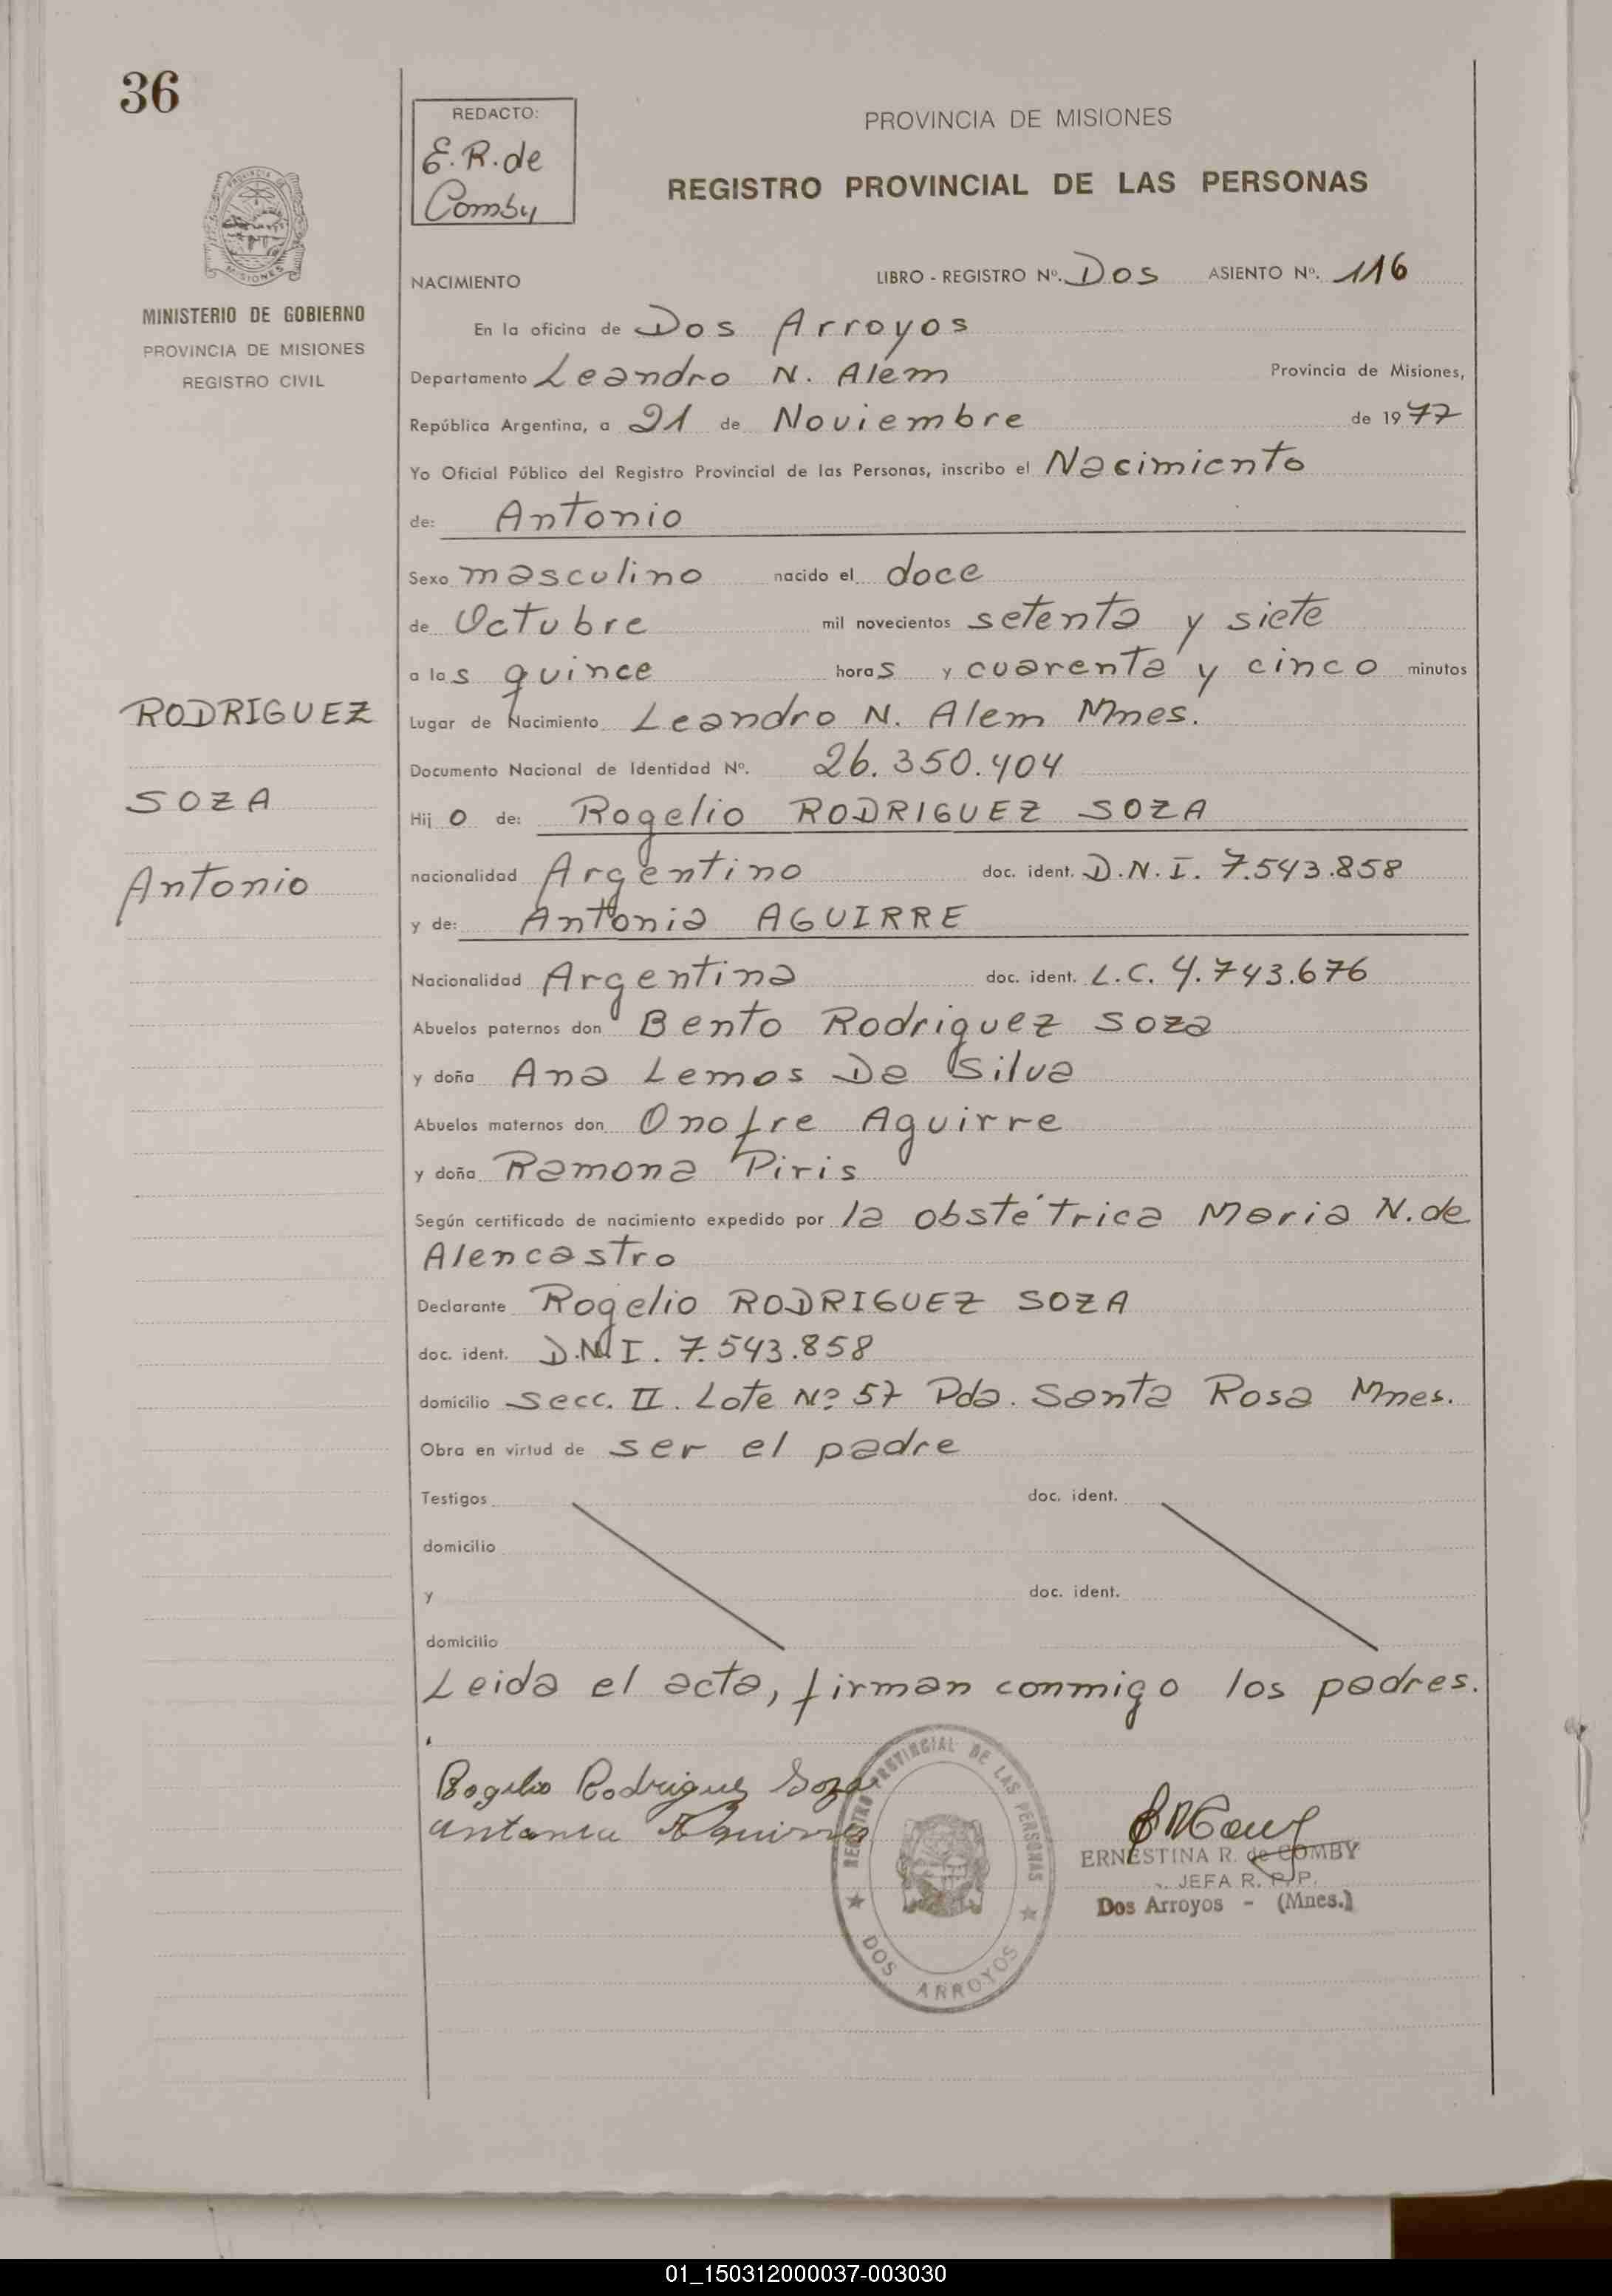 36
REDACTO:
E.R. de
Comby
PROVINCIA DE MISIONES
REGISTRO PROVINCIAL DE LAS PERSONAS
MISIONES
MINISTERIO DE GOBIERNO
PROVINCIA DE MISIONES
REGISTRO CIVIL
NACIMIENTO LIBRO - REGISTRO Nº. Dos ASIENTO Nº. 116
En la oficina de Dos Arroyos
Departamento Leandro N. Alem Provincia de Misiones,
República Argentina, a 21 de Noviembre de 1977
Yo Oficial Público del Registro Provincial de las Personas, inscribo el Nacimiento
de: Antonio
Sexo masculino nacido el doce
de Octubre mil novecientos setenta y siete
a las quince horas y cuarenta y cinco minutos
RODRIGUEZ
SOZA
Antonio
Lugar de Nacimiento Leandro N. Alem Mnes.
Documento Nacional de Identidad Nº. 26.350.404
Hijo de: Rogelio RODRIGUEZ SOZA
nacionalidad Argentino doc. ident. D.N.I. 7.543.858
y de: Antonia AGUIRRE
Nacionalidad Argentina doc. ident. L.C. 4.743.676
Abuelos paternos don Bento Rodriguez Soza
y doña Ana Lemos Da Silva
Abuelos maternos don Onofre Aguirre
y doña Ramona Piris
Según certificado de nacimiento expedido por la obstétrica Maria N. de
Alencastro
Declarante Rogelio RODRIGUEZ SOZA
doc. ident. D.N.I. 7.543.858
domicilio Secc. II. Lote Nº 57 Pda. Santa Rosa Mnes.
Obra en virtud de ser el padre
Testigos doc. ident.
domicilio
y doc. ident.
domicilio
Leida el acta, firman conmigo los padres.
Rogelio Rodriguez Soza
Antonia Aguirre
REGISTRO PROVINCIAL DE LAS PERSONAS
DOS ARROYOS
ERNESTINA R. de COMBY
JEFA R. P. P.
Dos Arroyos - (Mnes.)
01_150312000037-003030